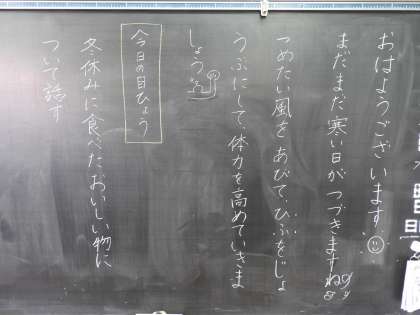 おはようございます
まだまだ寒い日がつづきますね
つめたい風をあびて、ひふをじょ
うぶにして、体力を高めていきま
しょう
今日の目ひょう
冬休みに食べたおいしい物に
ついて話す